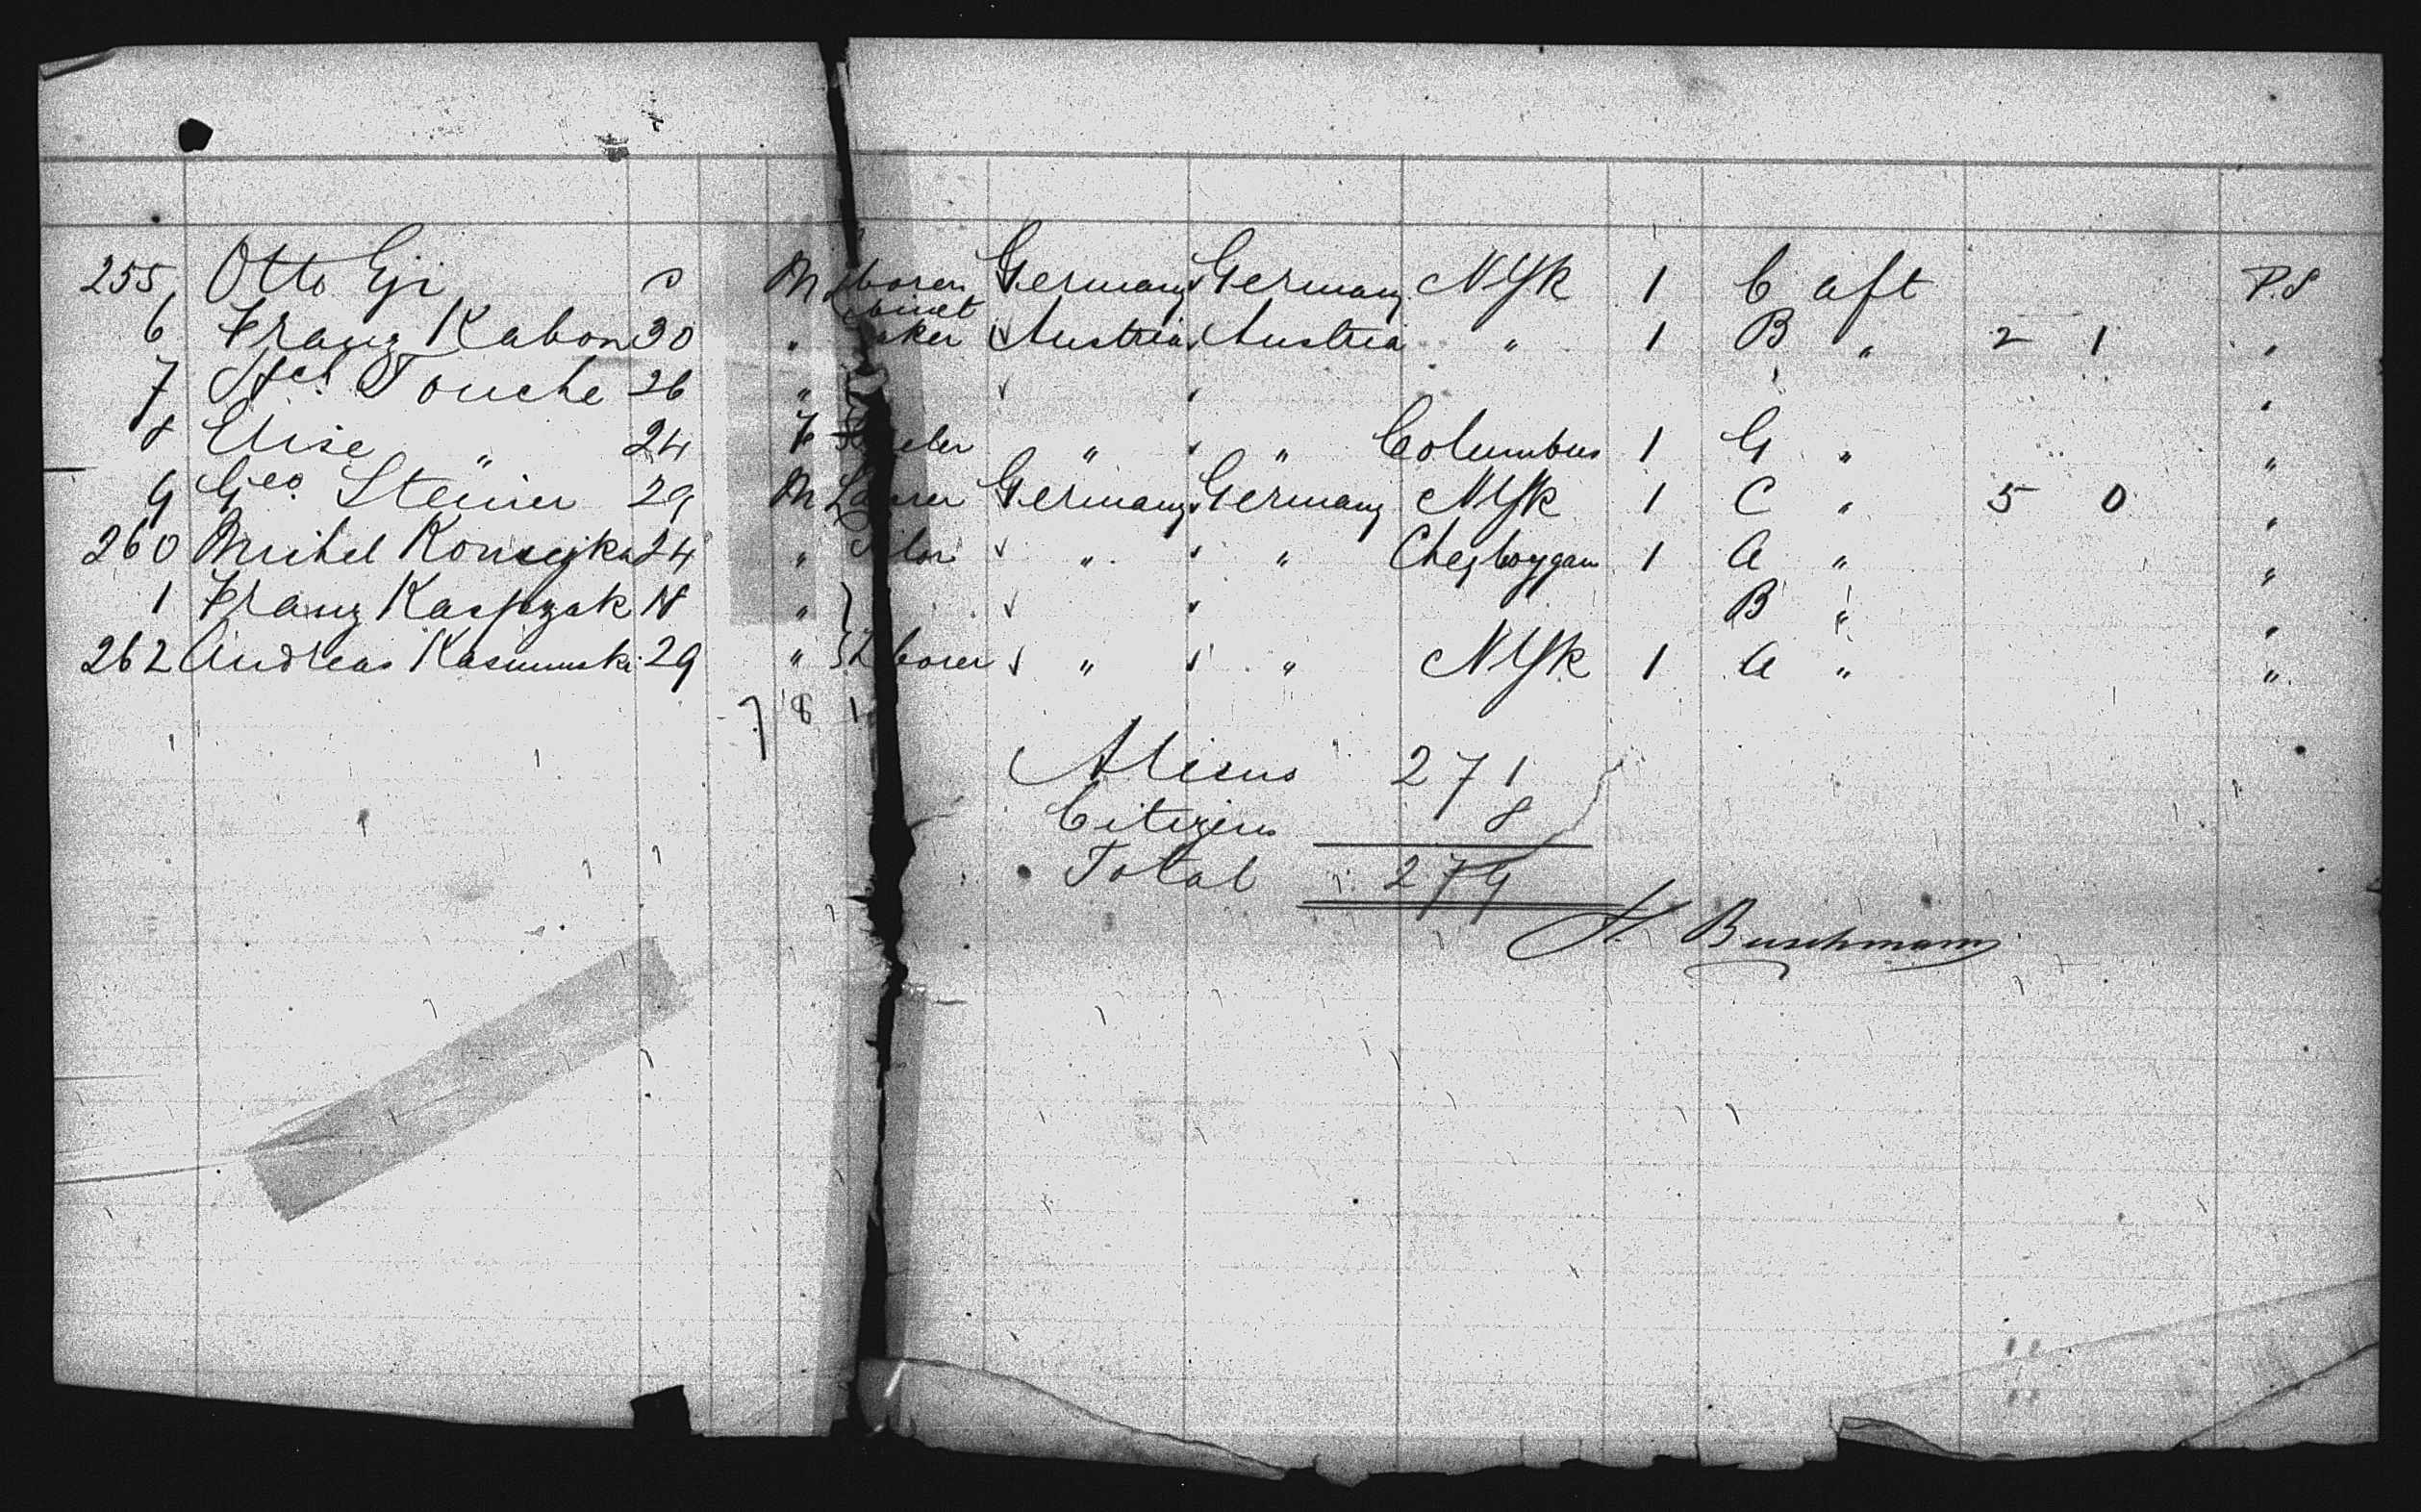 255 Otto Gji M borer Germany Germany NYk 1 C aft P.S
6 Franz Kabon 30 " binet aker Austria Austria " 1 B " 2 1 "
7 Touche 26 " "
8 Elise " 24 F " " Columbus 1 G " "
9 Geo. Steiner 29 M La rer Germany Germany NYk 1 C " 5 0 "
260 Michel 24 " " " 1 A " "
1 Franz Kaspzak 18 " B " "
262 Andreas 29 " L borer " " NYk 1 A " "
7 8 1
Aliens 271
Citizens 8
Total 279
H. Buschmann